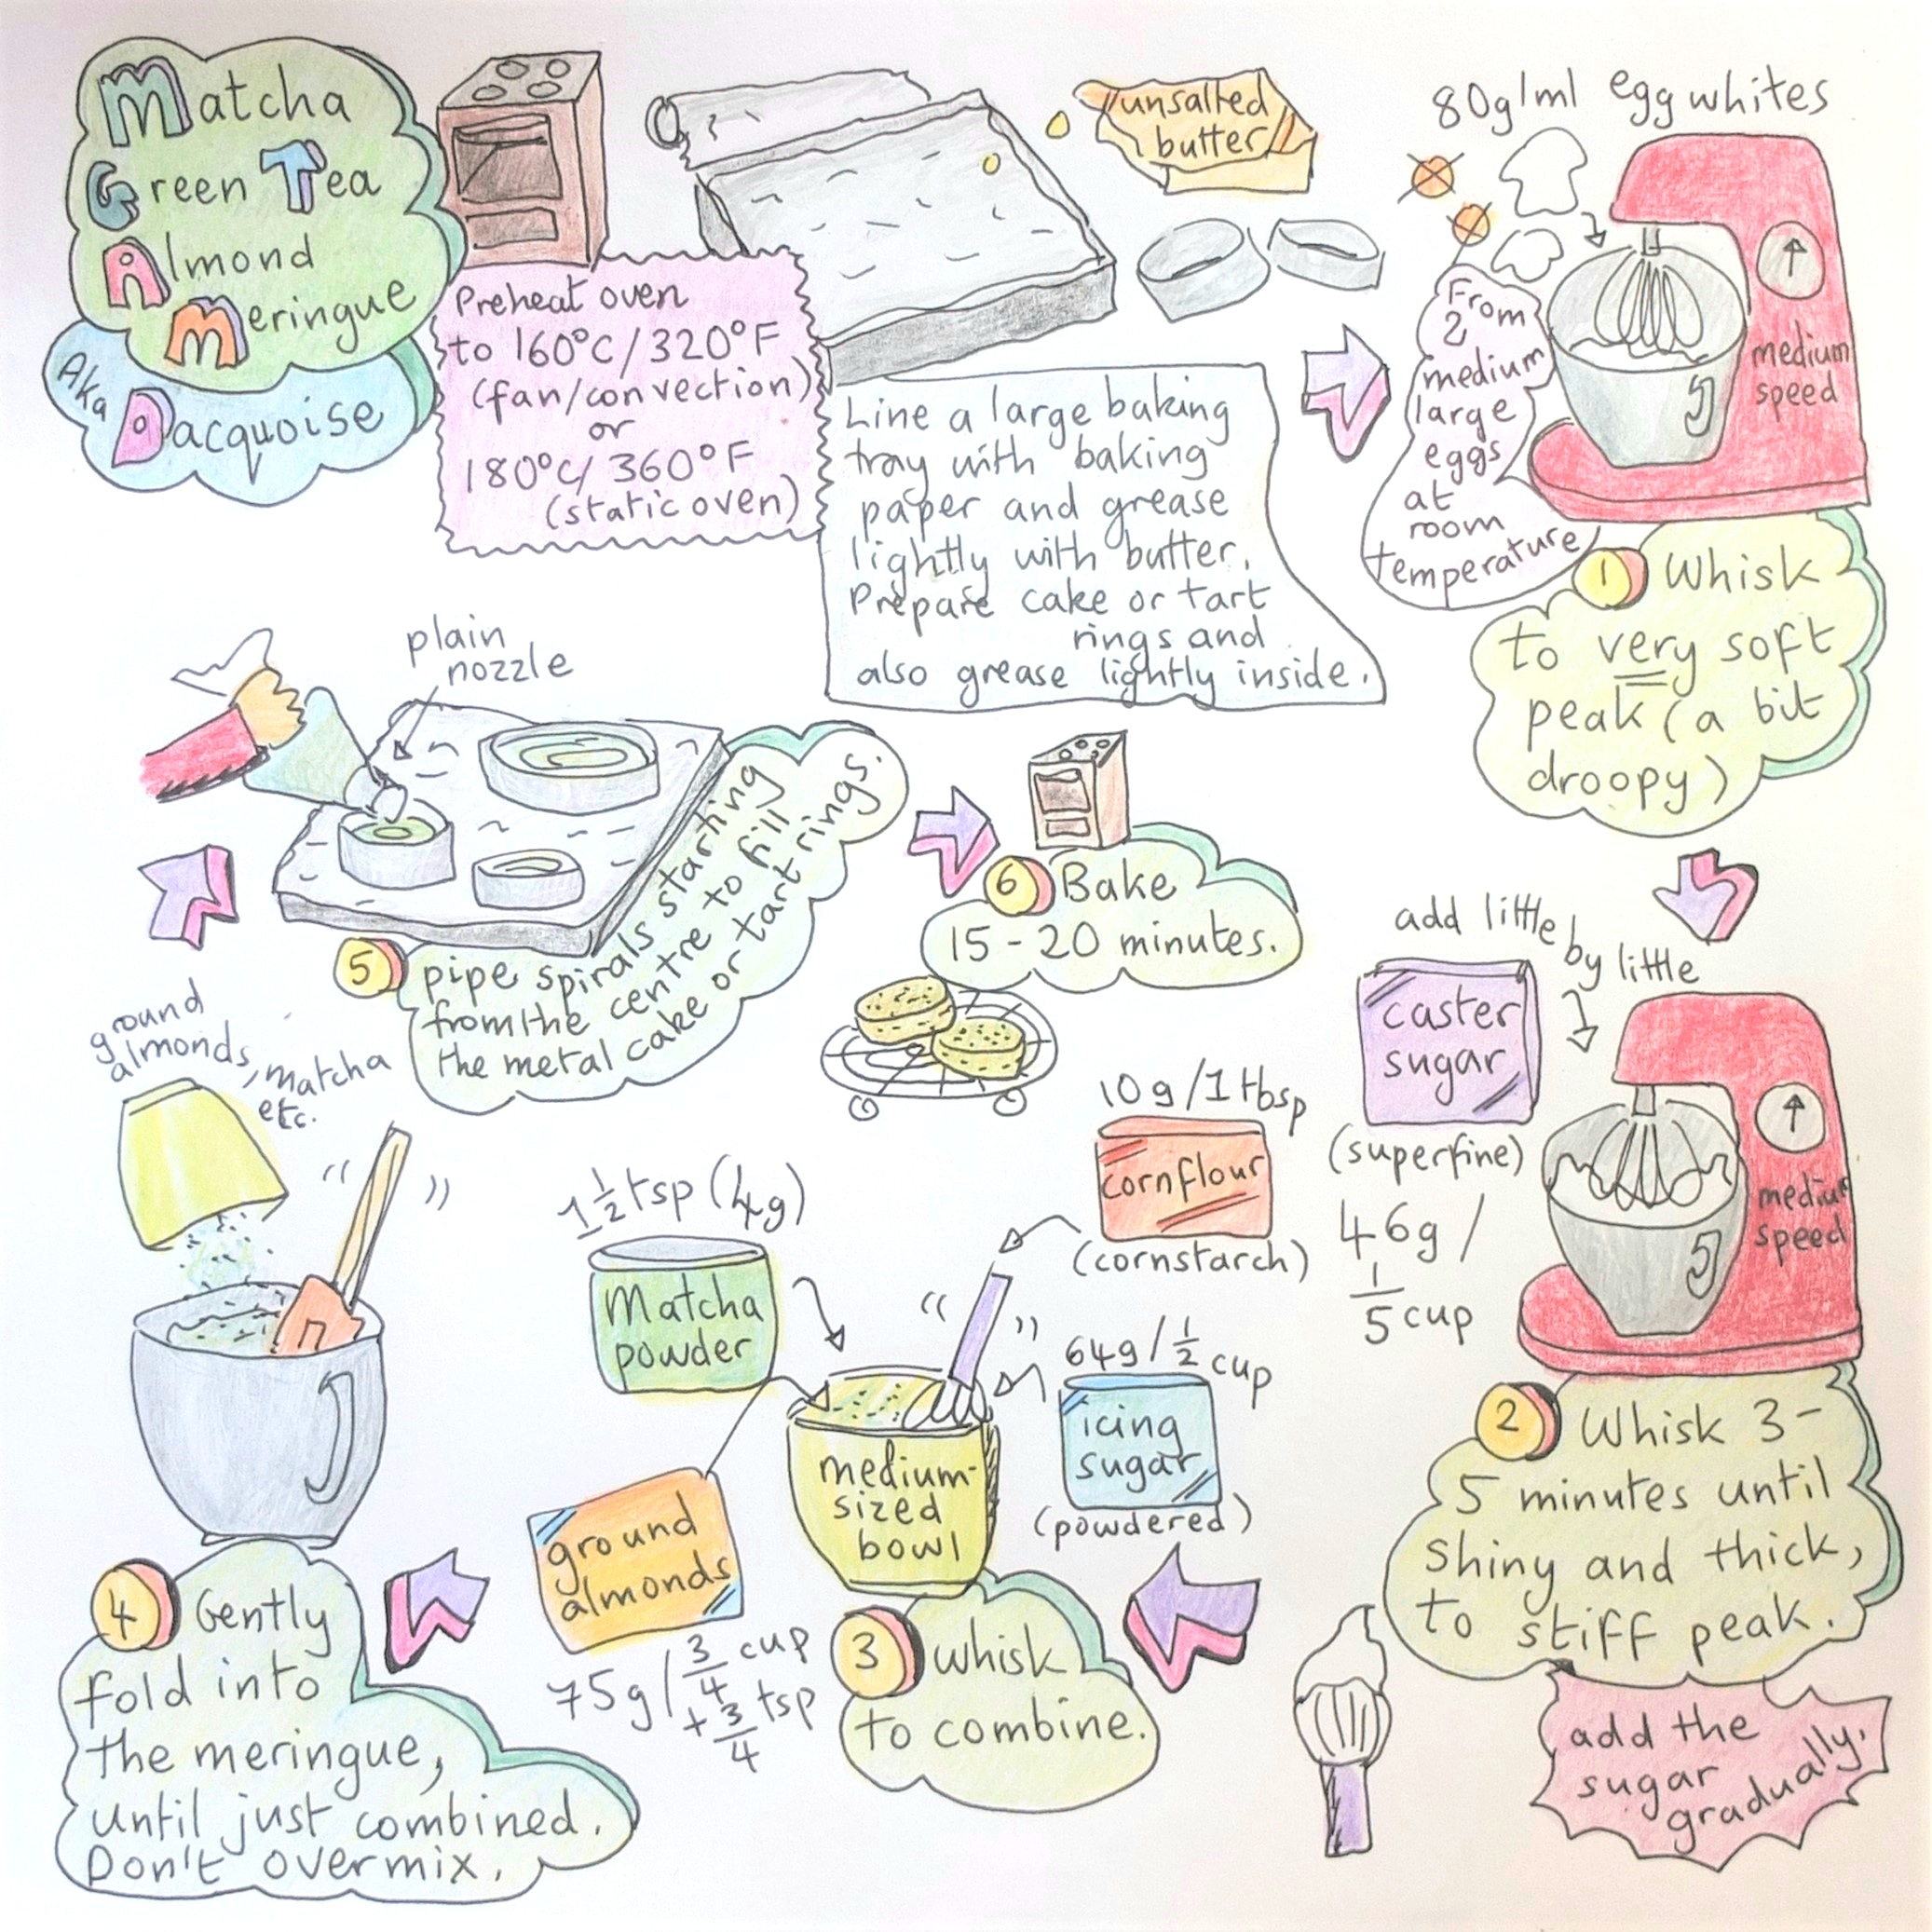 Matcha
Green Tea
Almond
Meringue
Aka
Dacquoise
Preheat oven
to 160°C/320°F
(fan/convection)
or
180°C/360°F
(static oven)
unsalted
butter
Line a large baking
tray with baking
paper and grease
lightly with butter.
Prepare cake or tart
rings and
also grease lightly inside.
80g/ml egg whites
From
2
medium
large
eggs
at
room
temperature
medium
speed
1 Whisk
to very soft
peak (a bit
droopy)
add little
by little
caster
sugar
(superfine)
46g/
1/5 cup
medium
speed
2 Whisk 3-
5 minutes until
shiny and thick,
to stiff peak.
add the
sugar
gradually.
10g/1 tbsp
cornflour
(cornstarch)
1 1/2 tsp (4g)
Matcha
powder
64g/1/2 cup
icing
sugar
(powdered)
medium-
sized
bowl
ground
almonds
75g/3/4 cup
+ 3/4 tsp
3 Whisk
to combine.
ground
almonds, matcha
etc.
4 Gently
fold into
the meringue,
until just combined.
Don't overmix.
plain
nozzle
5 pipe spirals starting
from the centre to fill
the metal cake or tart rings.
6 Bake
15-20 minutes.